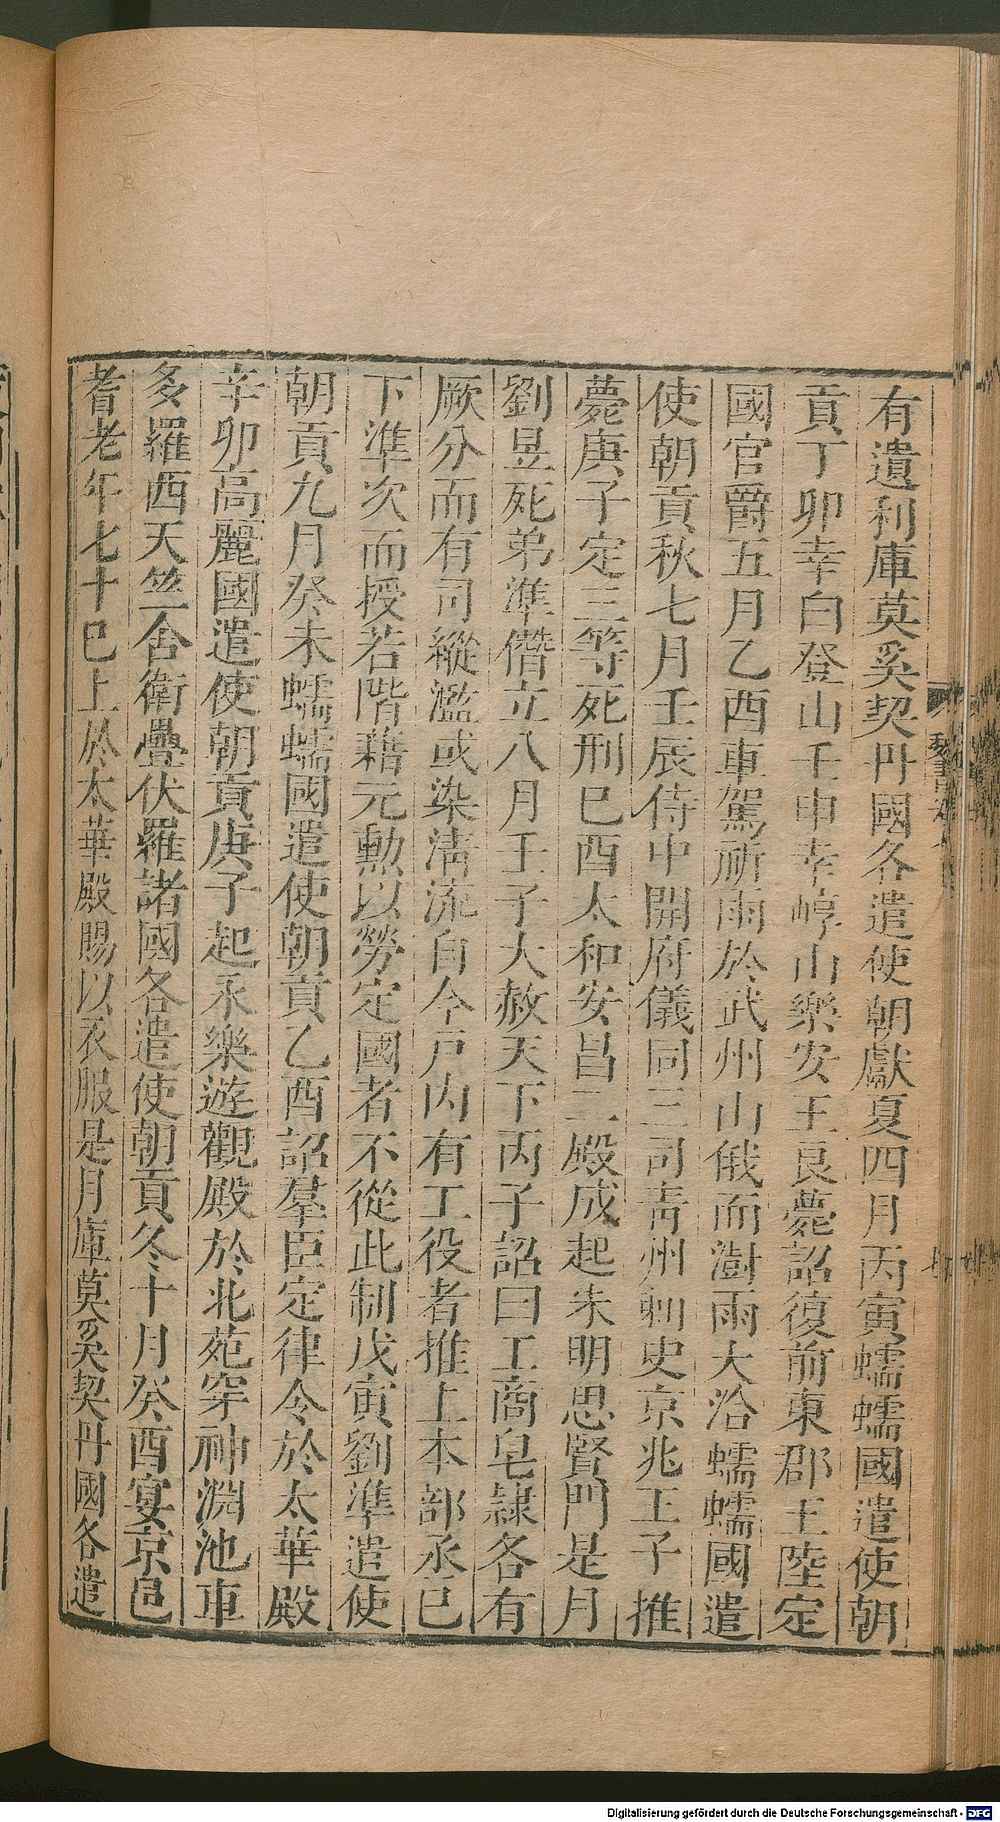 有遺利庫莫奚契丹國各遣使朝獻夏四月丙寅蠕蠕國遣使朝
貢丁卯幸白登山壬申幸崞山樂安王良薨詔復前東郡王陸定
國官爵五月乙酉車駕祈雨於武州山俄而澍雨大洽蠕蠕國遣
使朝貢秋七月壬辰侍中開府儀同三司青州刺史京兆王子推
薨庚子定三等死刑巳酉太和安昌二殿成起朱明思賢門是月
劉昱死弟準僭立八月壬子大赦天下丙子詔曰工商皂隸各有
厥分而有司縱濫或染清流自今戶内有工役者推上本部丞巳
下準次而授若階藉元勳以勞定國者不從此制戊寅劉準遣使
朝貢九月癸未蠕蠕國遣使朝貢乙酉詔羣臣定律令於太華殿
辛卯高麗國遣使朝貢庚子起永樂遊觀殿於北苑穿神淵池車
多羅西天竺舍衛疊伏羅諸國各遣使朝貢冬十月癸酉宴京邑
耆老年七十巳上於太華殿賜以衣服是月庫莫奚契丹國各遣
Digitalisierung gefördert durch die Deutsche Forschungsgemeinschaft - DFG